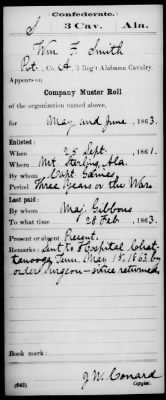 Confederate.
S 3 Cav. Ala.
Wm F. Smith
Pvt, Co. A, 3 Reg't Alabama Cavalry.
Appears on
Company Muster Roll
of the organization named above,
for May and June, 1863.
Enlisted:
When 25 Sept., 1861.
Where Mt. Sterling, Ala.
By whom Capt. Gaines
Period Three Years or the War
Last paid:
By whom Maj. Gibbons
To what time 28 Feb., 1863.
Present or absent Present.
Remarks: Sent to Hospital Chat-
tanooga Tenn. May 15, 1863 by
order Surgeon - since returned
(642) J. W. Conard
Copyist.